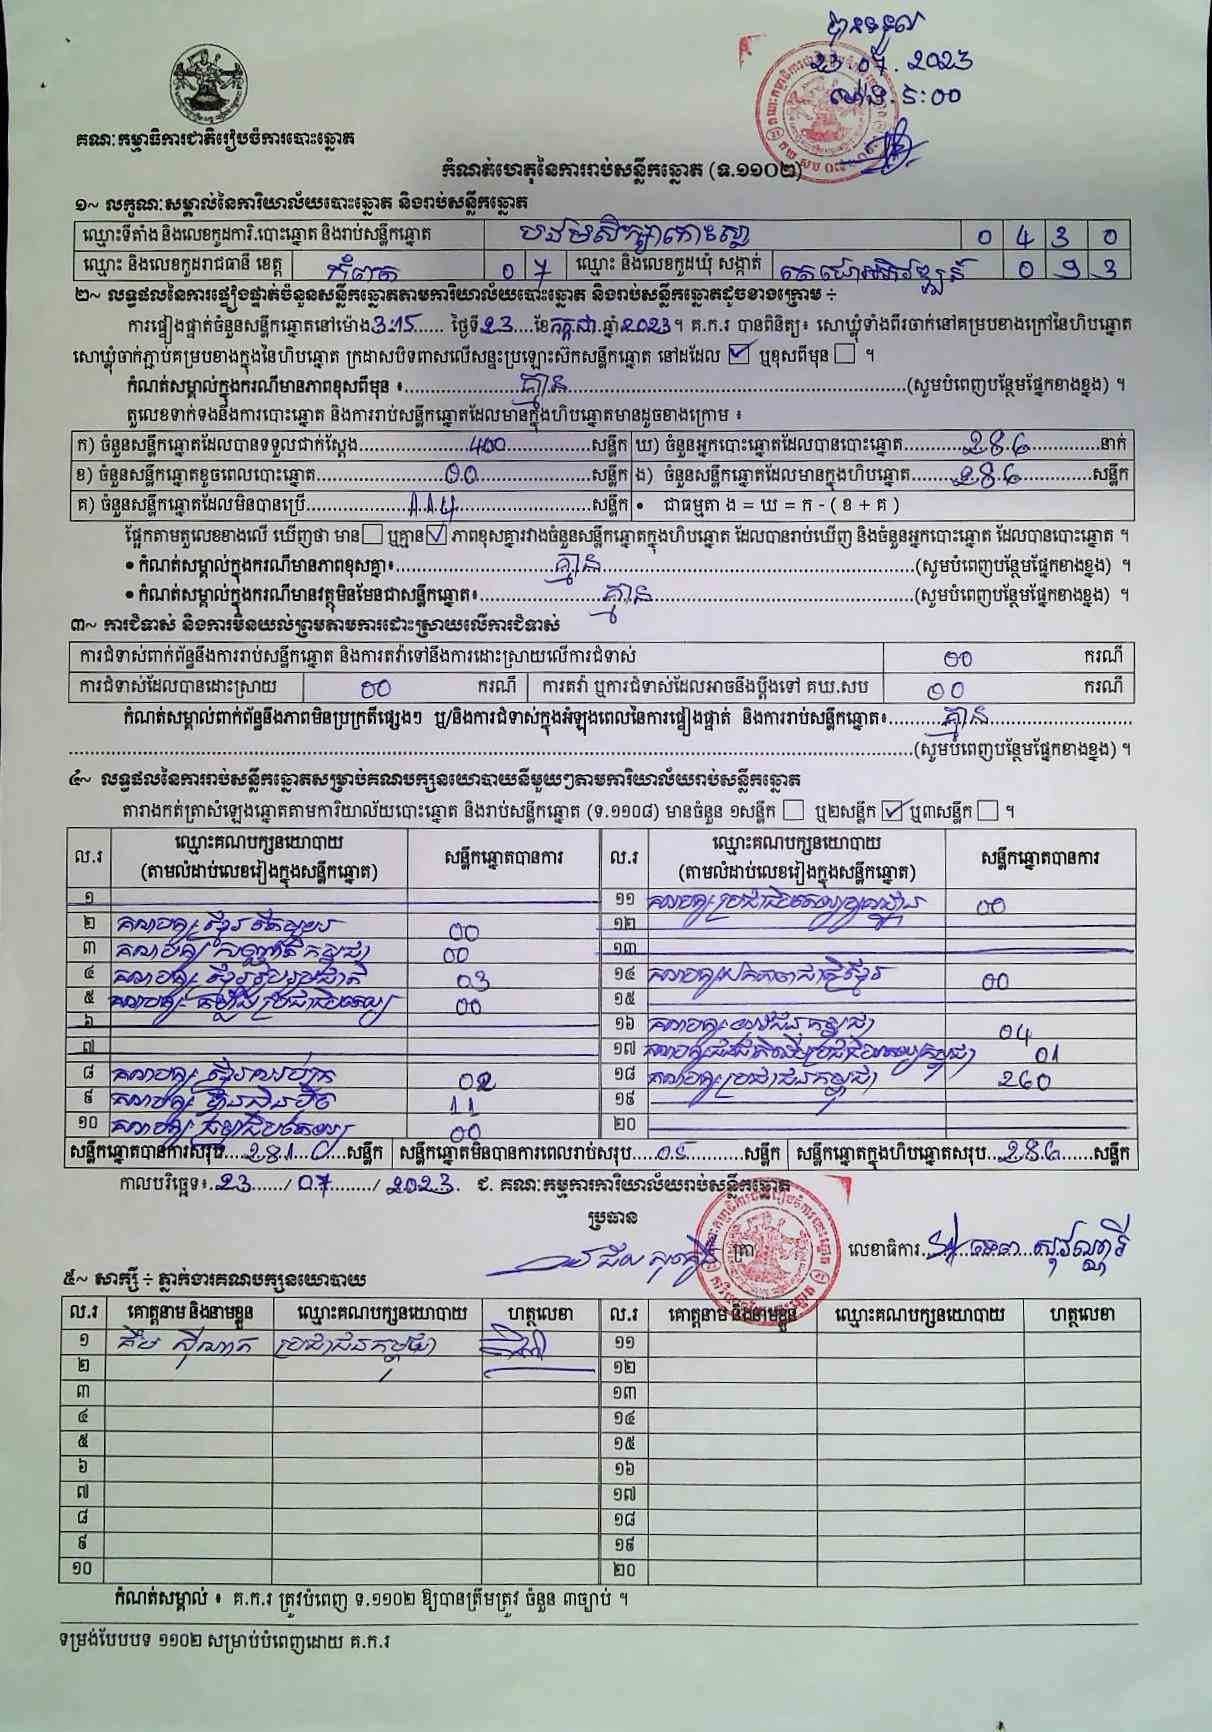 បានទទួល
23.07.2023
ម៉ោង.5:00
គណៈកម្មាធិការជាតិរៀបចំការបោះឆ្នោត
កំណត់ហេតុនៃការរាប់សន្លឹកឆ្នោត (ទ.១១០២)
១~ លក្ខណៈសម្គាល់នៃការិយាល័យបោះឆ្នោត និងរាប់សន្លឹកឆ្នោត
ឈ្មោះទីតាំង និងលេខកូដការិ.បោះឆ្នោត និងរាប់សន្លឹកឆ្នោត បឋមសិក្សាកោះស្លា 0 4 3 0
ឈ្មោះ និងលេខកូដរាជធានី ខេត្ត កំពត 0 7 ឈ្មោះ និងលេខកូដឃុំ សង្កាត់ 0 9 3
២~ លទ្ធផលនៃការផ្ទៀងផ្ទាត់ចំនួនសន្លឹកឆ្នោតតាមការិយាល័យបោះឆ្នោត និងរាប់សន្លឹកឆ្នោតដូចខាងក្រោម ÷
ការផ្ទៀងផ្ទាត់ចំនួនសន្លឹកឆ្នោតនៅម៉ោង 3:15 ថ្ងៃទី 23 ខែ កក្កដា ឆ្នាំ 2023 ។ គ.ក.រ បានពិនិត្យ៖ សោឃ្លុំទាំងពីរចាក់នៅគម្របខាងក្រៅនៃហិបឆ្នោត
សោឃ្លុំចាក់ភ្ជាប់គម្របខាងក្នុងនៃហិបឆ្នោត ក្រដាសបិទពាសលើសន្ទះប្រឡោះស៊កសន្លឹកឆ្នោត នៅដដែល ☑ ឬខុសពីមុន ☐ ។
កំណត់សម្គាល់ក្នុងករណីមានភាពខុសពីមុន ៖ គ្មាន (សូមបំពេញបន្ថែមផ្នែកខាងខ្នង) ។
តួលេខទាក់ទងនឹងការបោះឆ្នោត និងការរាប់សន្លឹកឆ្នោតដែលមានក្នុងហិបឆ្នោតមានដូចខាងក្រោម ៖
ក) ចំនួនសន្លឹកឆ្នោតដែលបានទទួលជាក់ស្តែង 400 សន្លឹក ឃ) ចំនួនអ្នកបោះឆ្នោតដែលបានបោះឆ្នោត 286 នាក់
ខ) ចំនួនសន្លឹកឆ្នោតខូចពេលបោះឆ្នោត 00 សន្លឹក ង) ចំនួនសន្លឹកឆ្នោតដែលមានក្នុងហិបឆ្នោត 286 សន្លឹក
គ) ចំនួនសន្លឹកឆ្នោតដែលមិនបានប្រើ 114 សន្លឹក • ជាធម្មតា ង = ឃ = ក - ( ខ + គ )
ផ្អែកតាមតួលេខខាងលើ ឃើញថា មាន ☐ ឬគ្មាន ☑ ភាពខុសគ្នារវាងចំនួនសន្លឹកឆ្នោតក្នុងហិបឆ្នោត ដែលបានរាប់ឃើញ និងចំនួនអ្នកបោះឆ្នោត ដែលបានបោះឆ្នោត ។
• កំណត់សម្គាល់ក្នុងករណីមានភាពខុសគ្នា៖ គ្មាន (សូមបំពេញបន្ថែមផ្នែកខាងខ្នង) ។
• កំណត់សម្គាល់ក្នុងករណីមានវត្ថុមិនមែនជាសន្លឹកឆ្នោត៖ គ្មាន (សូមបំពេញបន្ថែមផ្នែកខាងខ្នង) ។
៣~ ការជំទាស់ និងការមិនយល់ព្រមតាមការដោះស្រាយលើការជំទាស់
ការជំទាស់ពាក់ព័ន្ធនឹងការរាប់សន្លឹកឆ្នោត និងការតវ៉ាទៅនឹងការដោះស្រាយលើការជំទាស់ 00 ករណី
ការជំទាស់ដែលបានដោះស្រាយ 00 ករណី ការតវ៉ា ឬការជំទាស់ដែលអាចនឹងប្តឹងទៅ គឃ.សប 00 ករណី
កំណត់សម្គាល់ពាក់ព័ន្ធនឹងភាពមិនប្រក្រតីផ្សេងៗ ឬ/និងការជំទាស់ក្នុងអំឡុងពេលនៃការផ្ទៀងផ្ទាត់ និងការរាប់សន្លឹកឆ្នោត៖ គ្មាន
(សូមបំពេញបន្ថែមផ្នែកខាងខ្នង) ។
៤~ លទ្ធផលនៃការរាប់សន្លឹកឆ្នោតសម្រាប់គណបក្សនយោបាយនីមួយៗតាមការិយាល័យរាប់សន្លឹកឆ្នោត
តារាងកត់ត្រាសំឡេងឆ្នោតតាមការិយាល័យបោះឆ្នោត និងរាប់សន្លឹកឆ្នោត (ទ.១១០៨) មានចំនួន ១សន្លឹក ☐ ឬ២សន្លឹក ☑ ឬ៣សន្លឹក ☐ ។
ល.រ ឈ្មោះគណបក្សនយោបាយ (តាមលំដាប់លេខរៀងក្នុងសន្លឹកឆ្នោត) សន្លឹកឆ្នោតបានការ ល.រ ឈ្មោះគណបក្សនយោបាយ (តាមលំដាប់លេខរៀងក្នុងសន្លឹកឆ្នោត) សន្លឹកឆ្នោតបានការ
១ ១១ 00
២ គណបក្ស ខ្មែរ 00 ១២
៣ គណបក្ស កម្ពុជា 00 ១៣
៤ គណបក្ស ខ្មែររួបរួមជាតិ 03 ១៤ 00
៥ គណបក្ស កម្លាំងប្រជាធិបតេយ្យ 00 ១៥
៦ ១៦ គណបក្ស យុវជនកម្ពុជា 04
៧ ១៧ 01
៨ គណបក្ស 02 ១៨ គណបក្ស ប្រជាជនកម្ពុជា 260
៩ គណបក្ស ហ៊្វុនស៊ិនប៉ិច 11 ១៩
១០ គណបក្ស 00 ២០
សន្លឹកឆ្នោតបានការសរុប 281 សន្លឹក សន្លឹកឆ្នោតមិនបានការពេលរាប់សរុប 05 សន្លឹក សន្លឹកឆ្នោតក្នុងហិបឆ្នោតសរុប 286 សន្លឹក
កាលបរិច្ឆេទ៖ 23 / 07 / 2023 ជ. គណៈកម្មការការិយាល័យរាប់សន្លឹកឆ្នោត
ប្រធាន
ត្រា លេខាធិការ សុវណ្ណារី
៥~ សាក្សី ÷ ភ្នាក់ងារគណបក្សនយោបាយ
ល.រ គោត្តនាម និងនាមខ្លួន ឈ្មោះគណបក្សនយោបាយ ហត្ថលេខា ល.រ គោត្តនាម និងនាមខ្លួន ឈ្មោះគណបក្សនយោបាយ ហត្ថលេខា
១ គឹម ស៊ីណាត ប្រជាជនកម្ពុជា ១១
២ ១២
៣ ១៣
៤ ១៤
៥ ១៥
៦ ១៦
៧ ១៧
៨ ១៨
៩ ១៩
១០ ២០
កំណត់សម្គាល់ ៖ គ.ក.រ ត្រូវបំពេញ ទ.១១០២ ឱ្យបានត្រឹមត្រូវ ចំនួន ៣ច្បាប់ ។
ទម្រង់បែបបទ ១១០២ សម្រាប់បំពេញដោយ គ.ក.រ